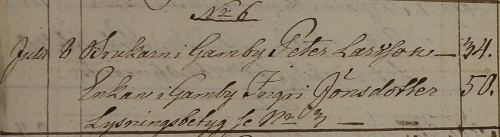 No 6
Julii 8 Brukarn i Gamby Peter Larsson — 34.
Enkan i Gamby Ingri Jönsdotter 50.
Lysningsbetyg se No 3 —